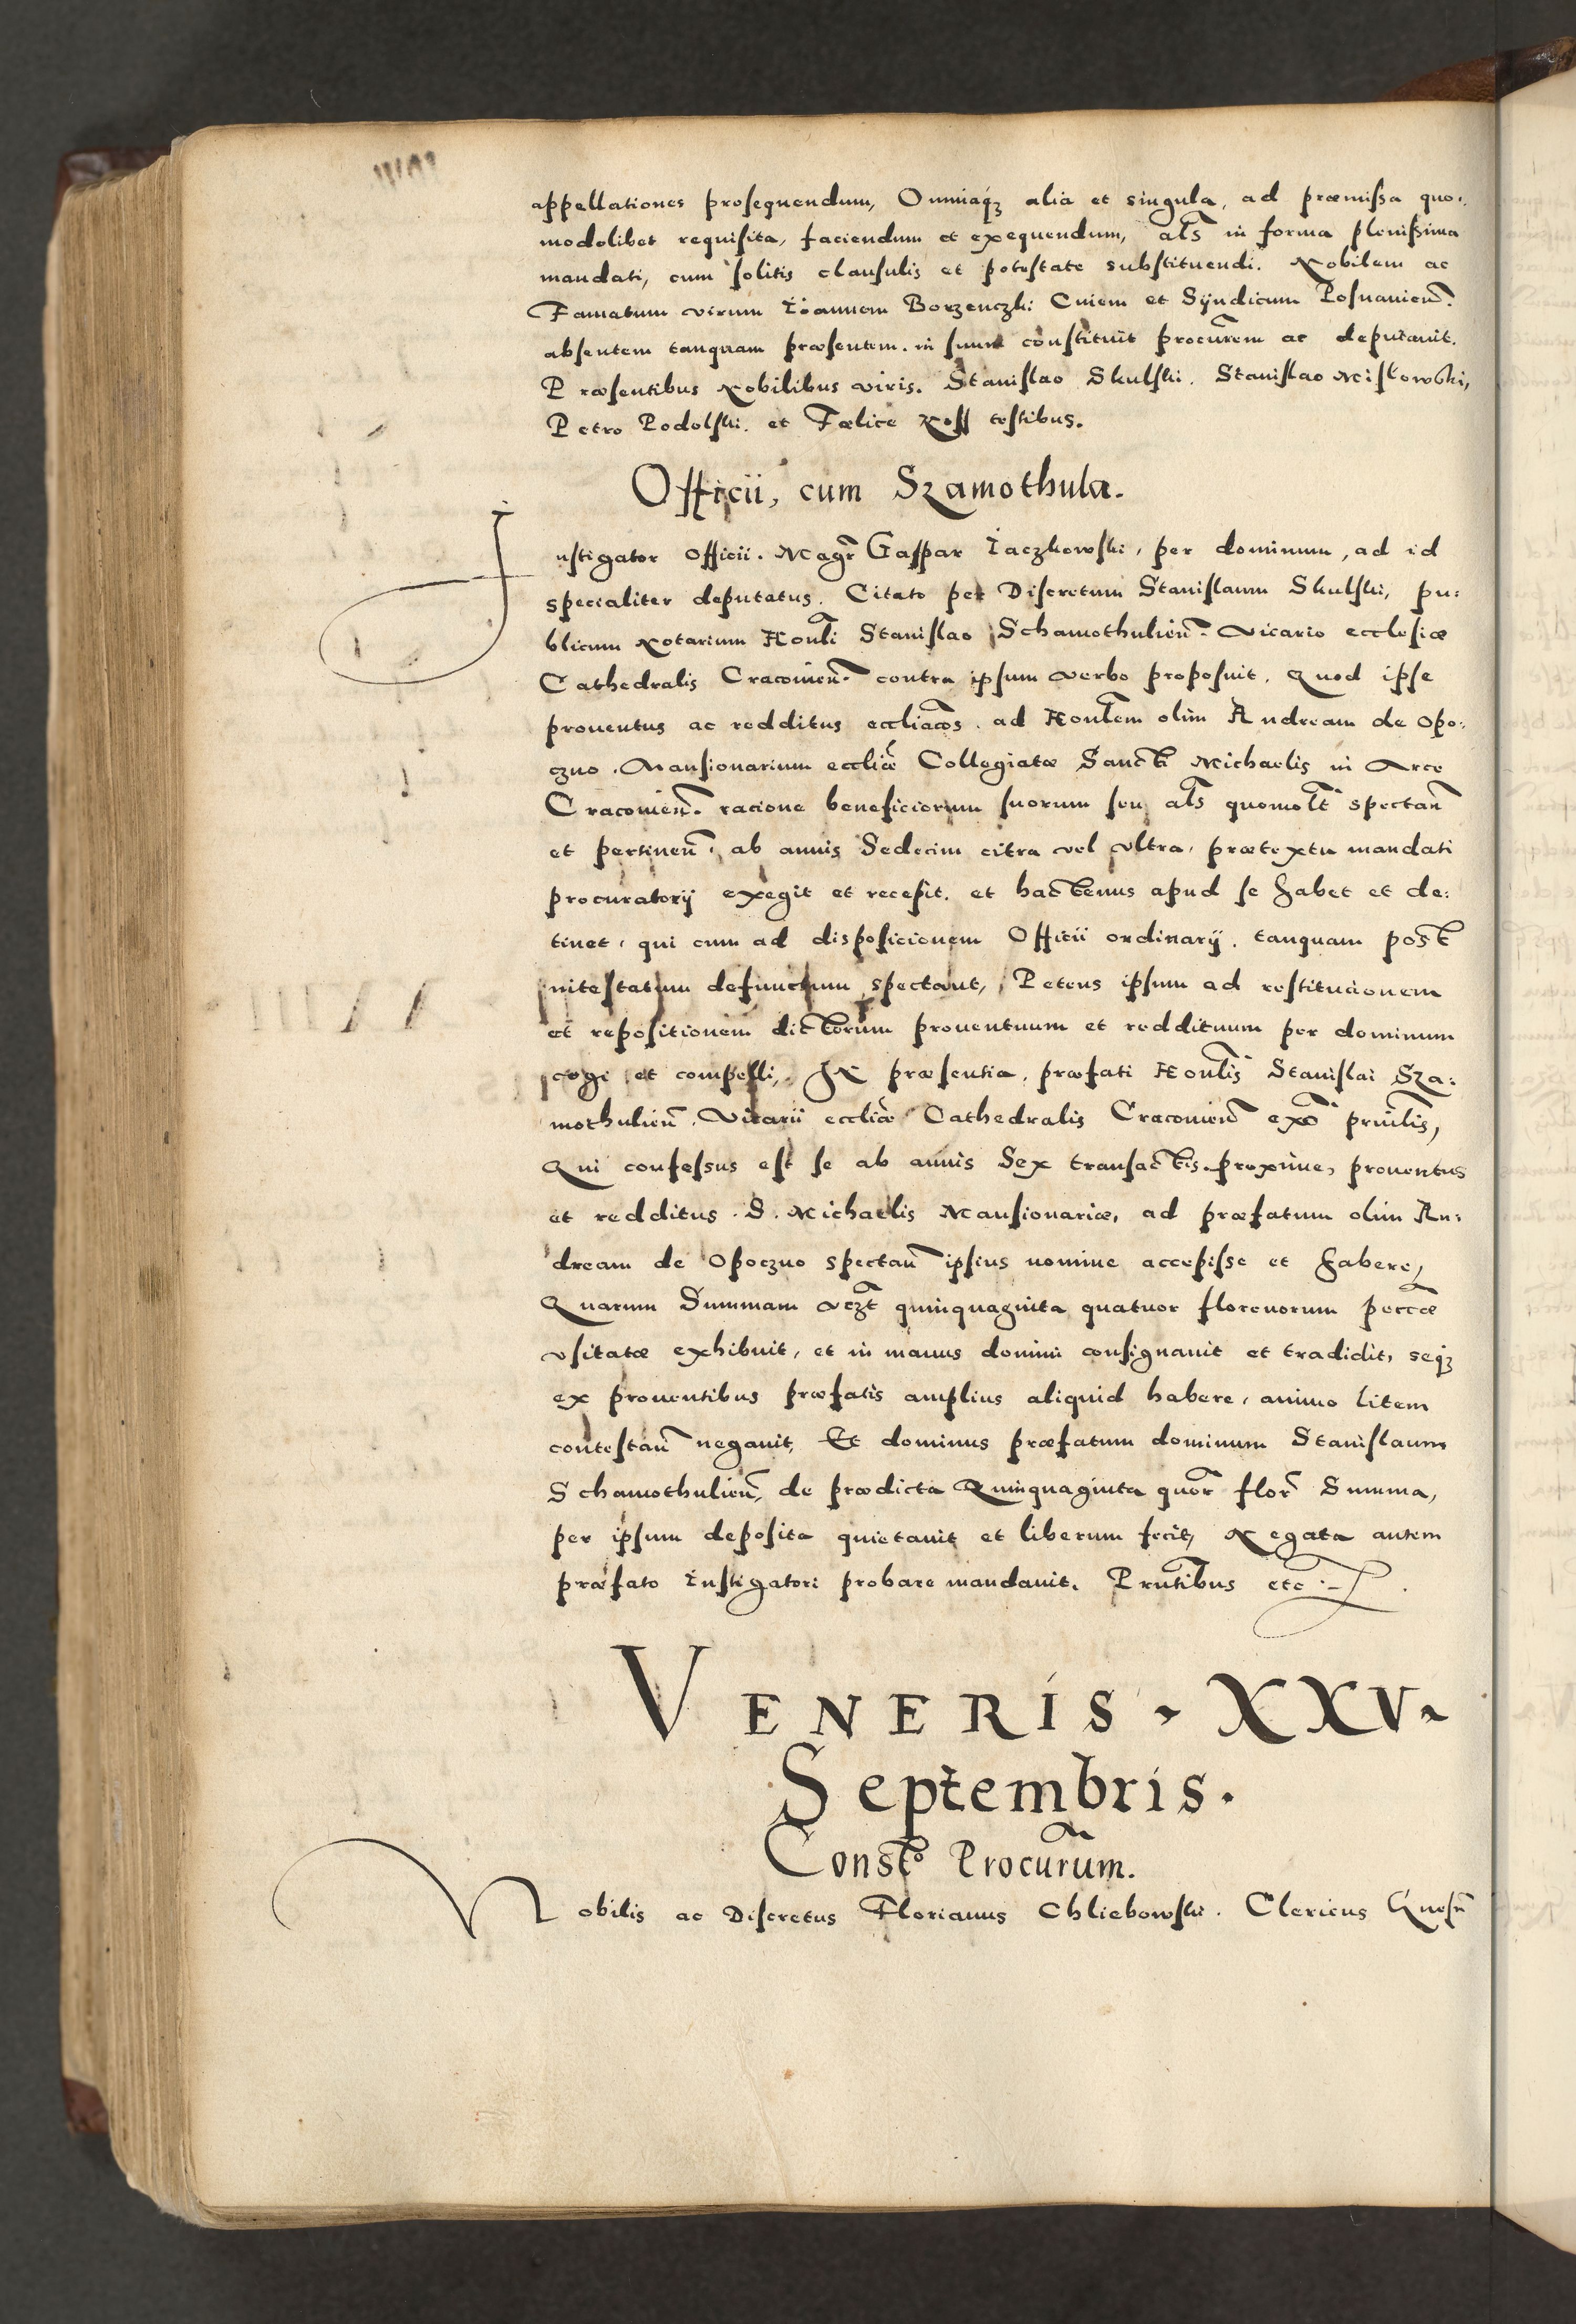 appellationes prosequendum, Omniaqz alia et singula, ad præmissa quo:
modolibet requisita, faciendum et exequendum, als in forma plenissima
mandati, cum solitis clausulis et potestate substituendi. Nobilem ac
Famatum virum Ioannem Borzenczki Ciuem et Syndicum Posnanien.
absentem tanquam præsentem. in suum constituit procurem ac deputauit.
Præsentibus Nobilibus viris. Stanislao Skulski. Stanislao Miskowski,
Petro Podolski. et Fœlice testibus.
Officii, cum Szamothula.
Instigator Officii. Magr Gaspar Iaczkowski, per dominum, ad id
specialiter deputatus. Citato per Discretum Stanislaum Skulski, pu:
blicum Notarium Honli Stanislao Schamothulien. Vicario ecclesiæ
Cathedralis Cracouien. contra ipsum verbo proposuit. Quod ipse
prouentus ac redditus eccliacos. ad Honlem olim Andream de Opo:
czno. Mansionarium eccliæ Collegiatæ Sancti Michaelis in Arce
Cracouien. racione beneficiorum suorum seu als quomolt spectan
et pertinen. ab annis Sedecim citra vel vltra, prætextu mandati
procuratorij exegit et recepit. et hactenus apud se habet et de:
tinet, qui cum ad disposicionem Officii ordinarij. tanquam post
intestatum defunctum spectant, Petens ipsum ad restitucionem
et repositionem dictorum prouentuum et reddituum per dominum
cogi et compelli, In præsentia, præfati Honlis Stanislai Sza:
mothulien. Vicarii eccliæ Cathedralis Cracouien
Qui confessus est se ab annis Sex transactis proxime, prouentus
et redditus. S. Michaelis Mansionariæ, ad præfatum olim An:
dream de Opoczno spectan ipsius nomine accepisse et habere,
Quarum Summam vczt quinquaginta quatuor florenorum peccæ
vsitatæ exhibuit, et in manus domini consignauit et tradidit, seqz
ex prouentibus præfatis amplius aliquid habere, animo litem
contestan negauit, Et dominus præfatum dominum Stanislaum
Schamothulien, de prædicta Quinquaginta quor flor Summa,
per ipsum deposita quietauit et liberum fecit, Negata autem
præfato Instigatori probare mandauit. Prntibus etc:-
VENERIS. XXV.
Septembris.
Consto Procurum.
Nobilis ac Discretus Florianus Chliebowski. Clericus Gnesn